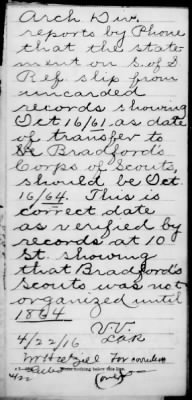 Arch Div.
reports by Phone
that the state-
ment on S. of S
Ref slip from
uncarded
records showing
Oct 16/61 as date
of transfer to
Bradford's
Corps of Scouts,
should be Oct
16/64. This is
correct date
as verified by
records at 10
St. showing
that Bradford's
Scouts was not
organized until
1864
V.V.
4/22/16
nothing below this line.
4/22 (only)